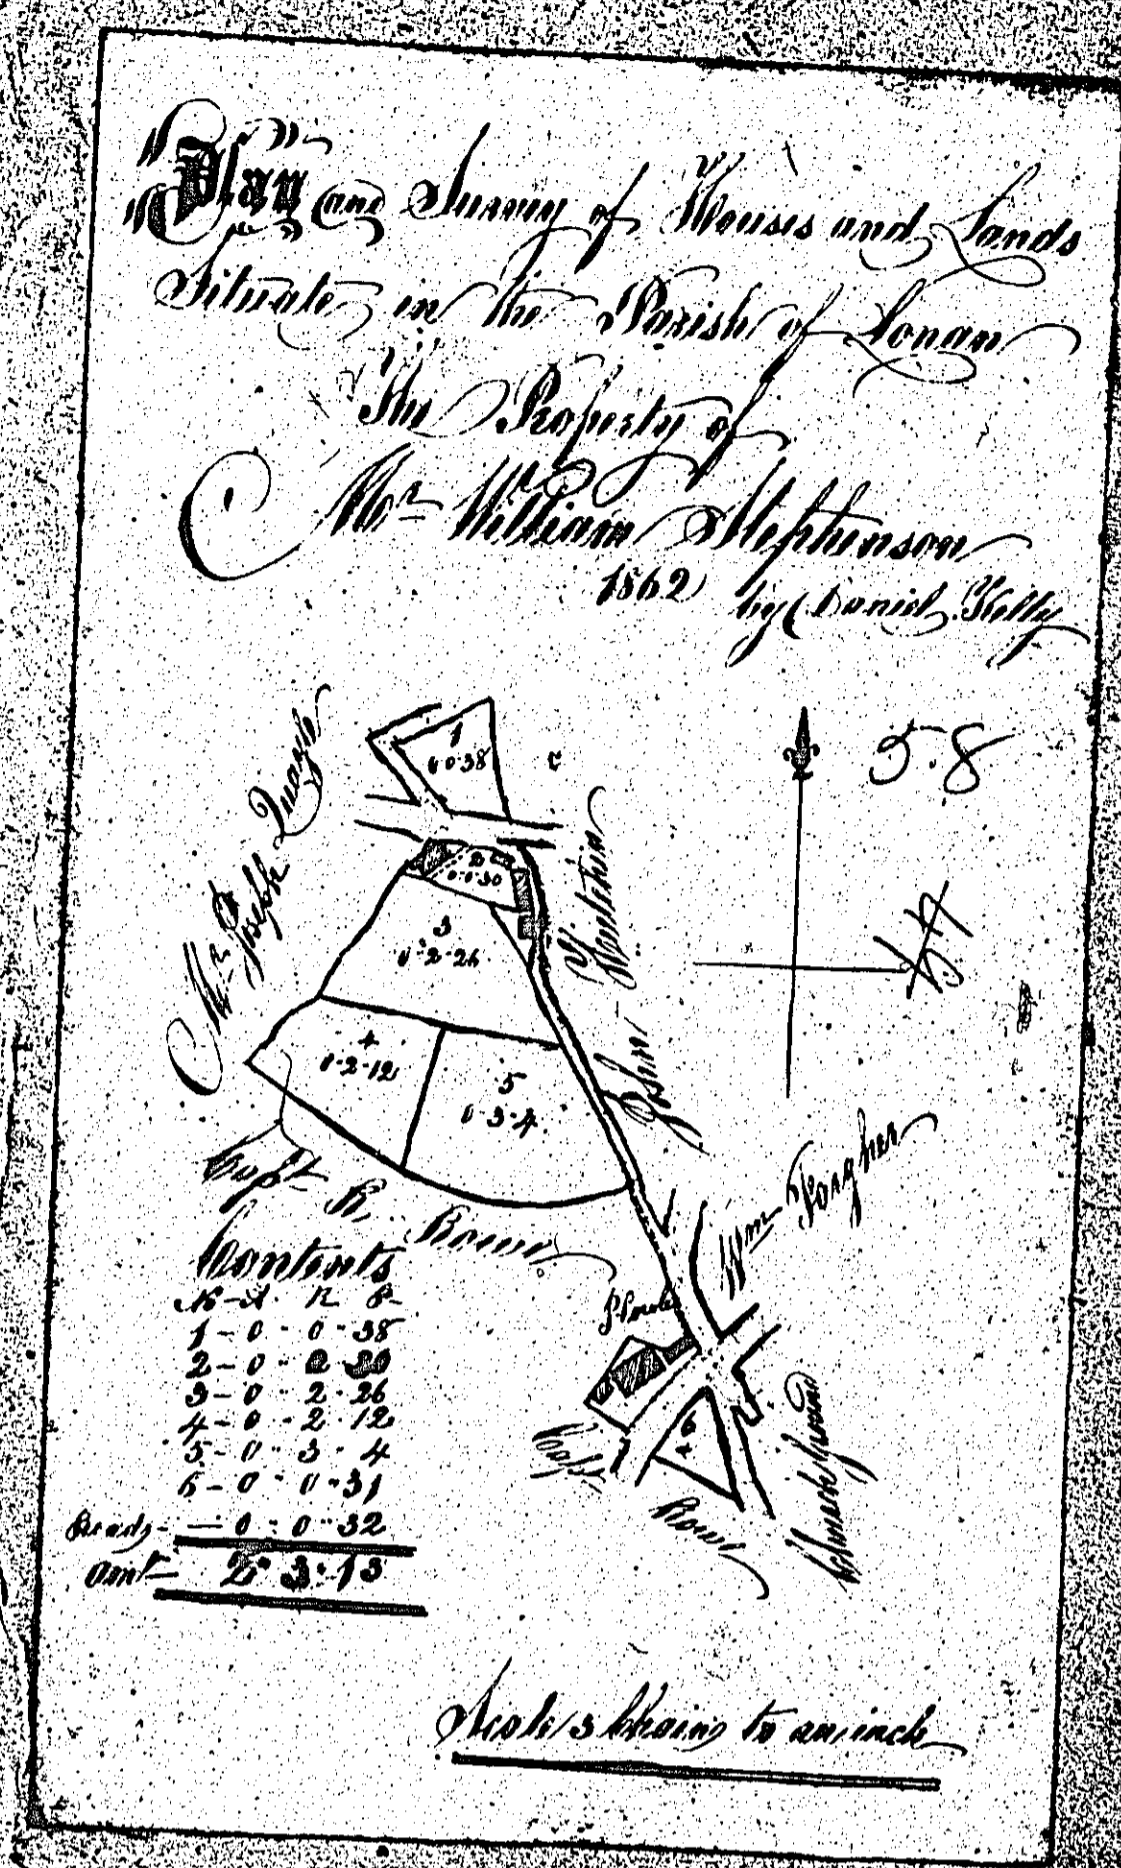 Plan and Survey of Houses and Lands
Situate in the Parish of Lonan
The Property of
Mr William Stephenson
1862 by Daniel Kelly
5.8
1
0 0 38
2
0·0·30
3
0·2·26
4
0·2·12
5
0·3·4
6
Mr Joseph Quayle
John
Capt R. Rowe
Wm Faragher
Capt Rowe
Church Ground
Contents
No - A - R P
1 - 0 - 0 - 38
2 - 0 - 0 30
3 - 0 - 2 - 26
4 - 0 - 2 - 12
5 - 0 - 3 - 4
6 - 0 - 0 - 31
Roads - 0 - 0 - 32
Amt - 2 - 3 - 13
Scale 3 Chains to an inch